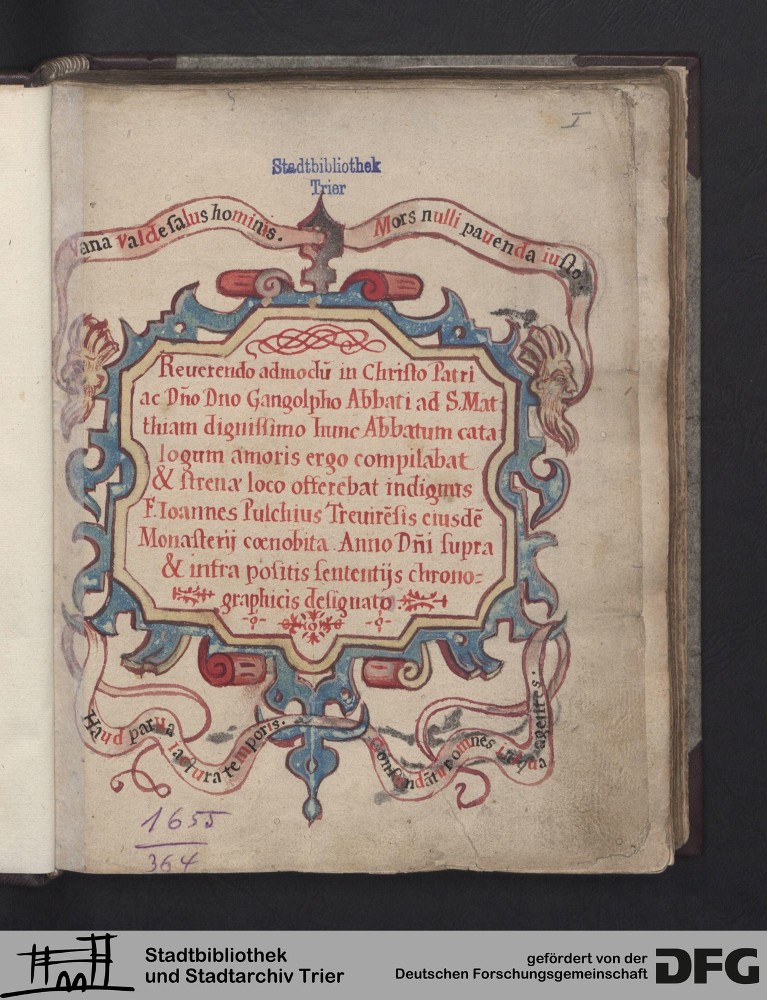 I
Stadtbibliothek
Trier
Vana valde salus hominis.
Mors nulli pauenda iusto.
Reuerendo admodū in Christo Patri
ac Dño Dno Gangolpho Abbati ad S.Mat
thiam dignissimo hunc Abbatum cata
logum amoris ergo compilabat
& strenæ loco offerebat indignus
F. Ioannes Pulchius Treuirēsis eiusdē
Monasterij cœnobita Anno Dñi supra
& infra positis sententijs chrono=
graphicis designato
Haud parua iactura temporis.
omnes agentes.
1655
364
Stadtbibliothek
und Stadtarchiv Trier
gefördert von der
Deutschen Forschungsgemeinschaft
DFG